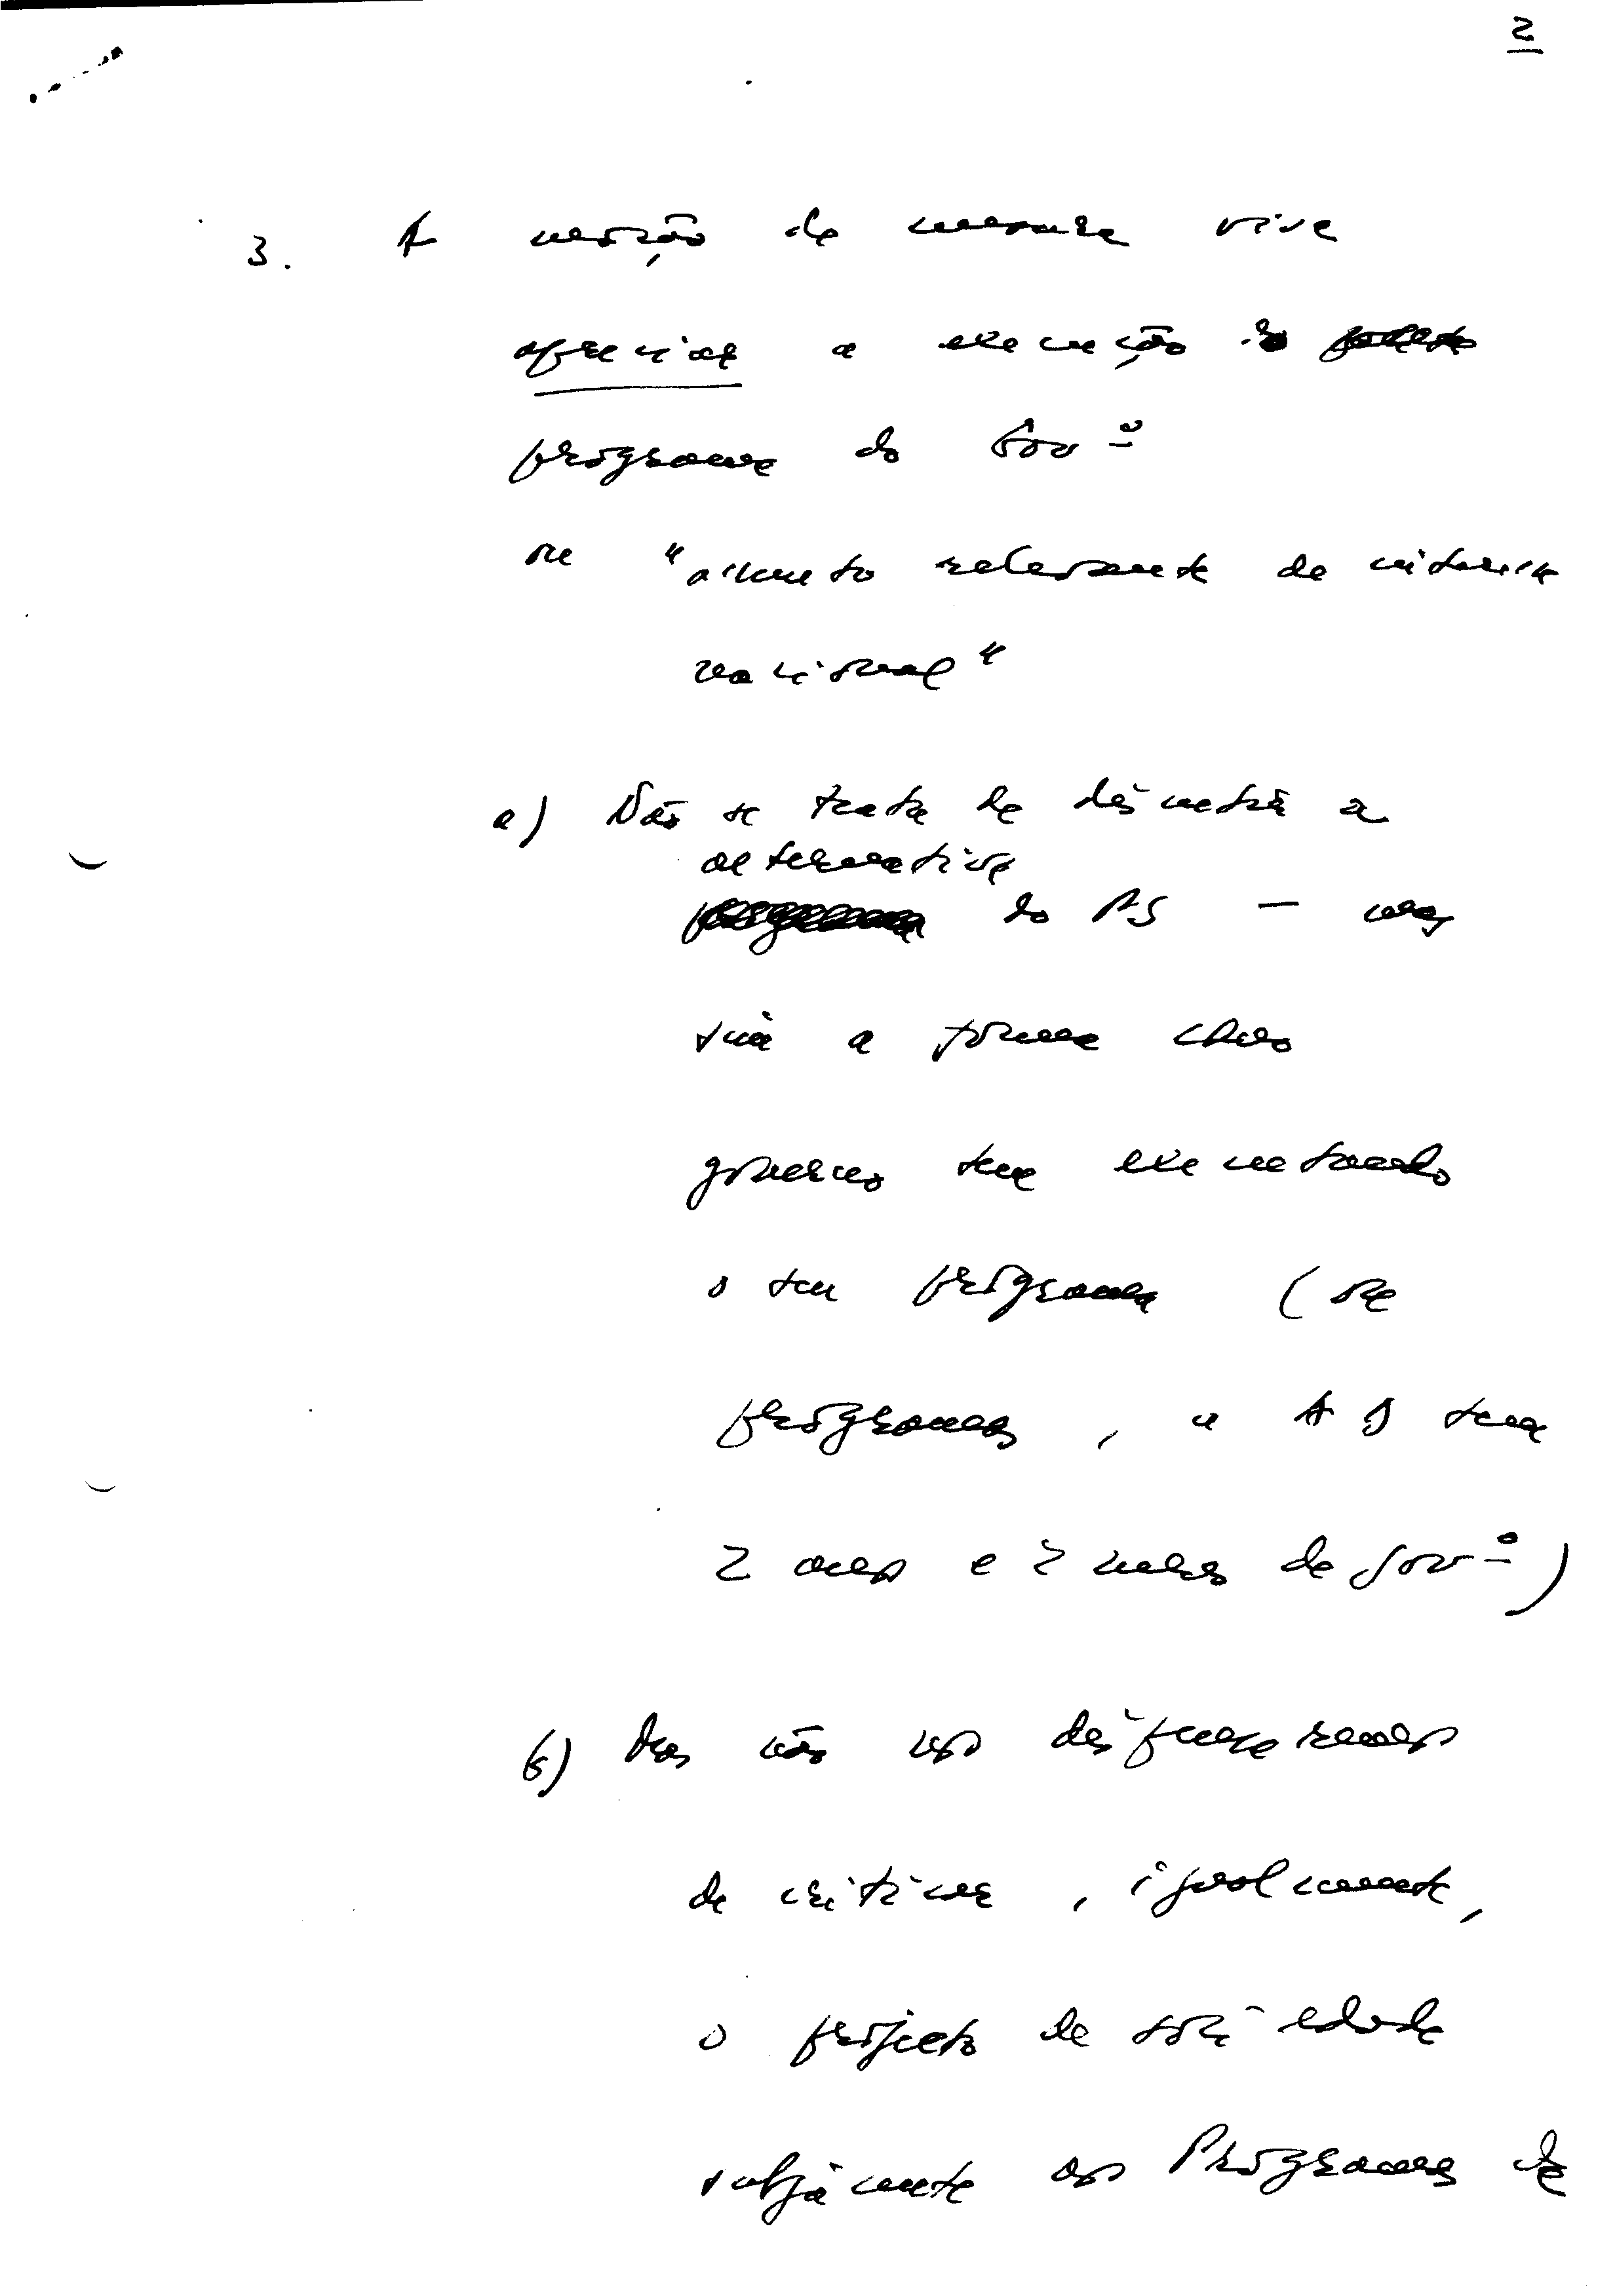 2
3. A moção de censura visa
apreciar a execução do
programa do Gov º
ou "assunto relevante de interesse
nacional"
a) Não se trata de discutir a
alternativa
do PS — mas
sim a forma como
governo tem executado
o seu programa (ou
programas, a AD tem
2 anos e 2 meses de govº)
b) Mas não nos dispensaremos
de criticar, igualmente,
o projecto de sociedade
subjacente aos Programas de